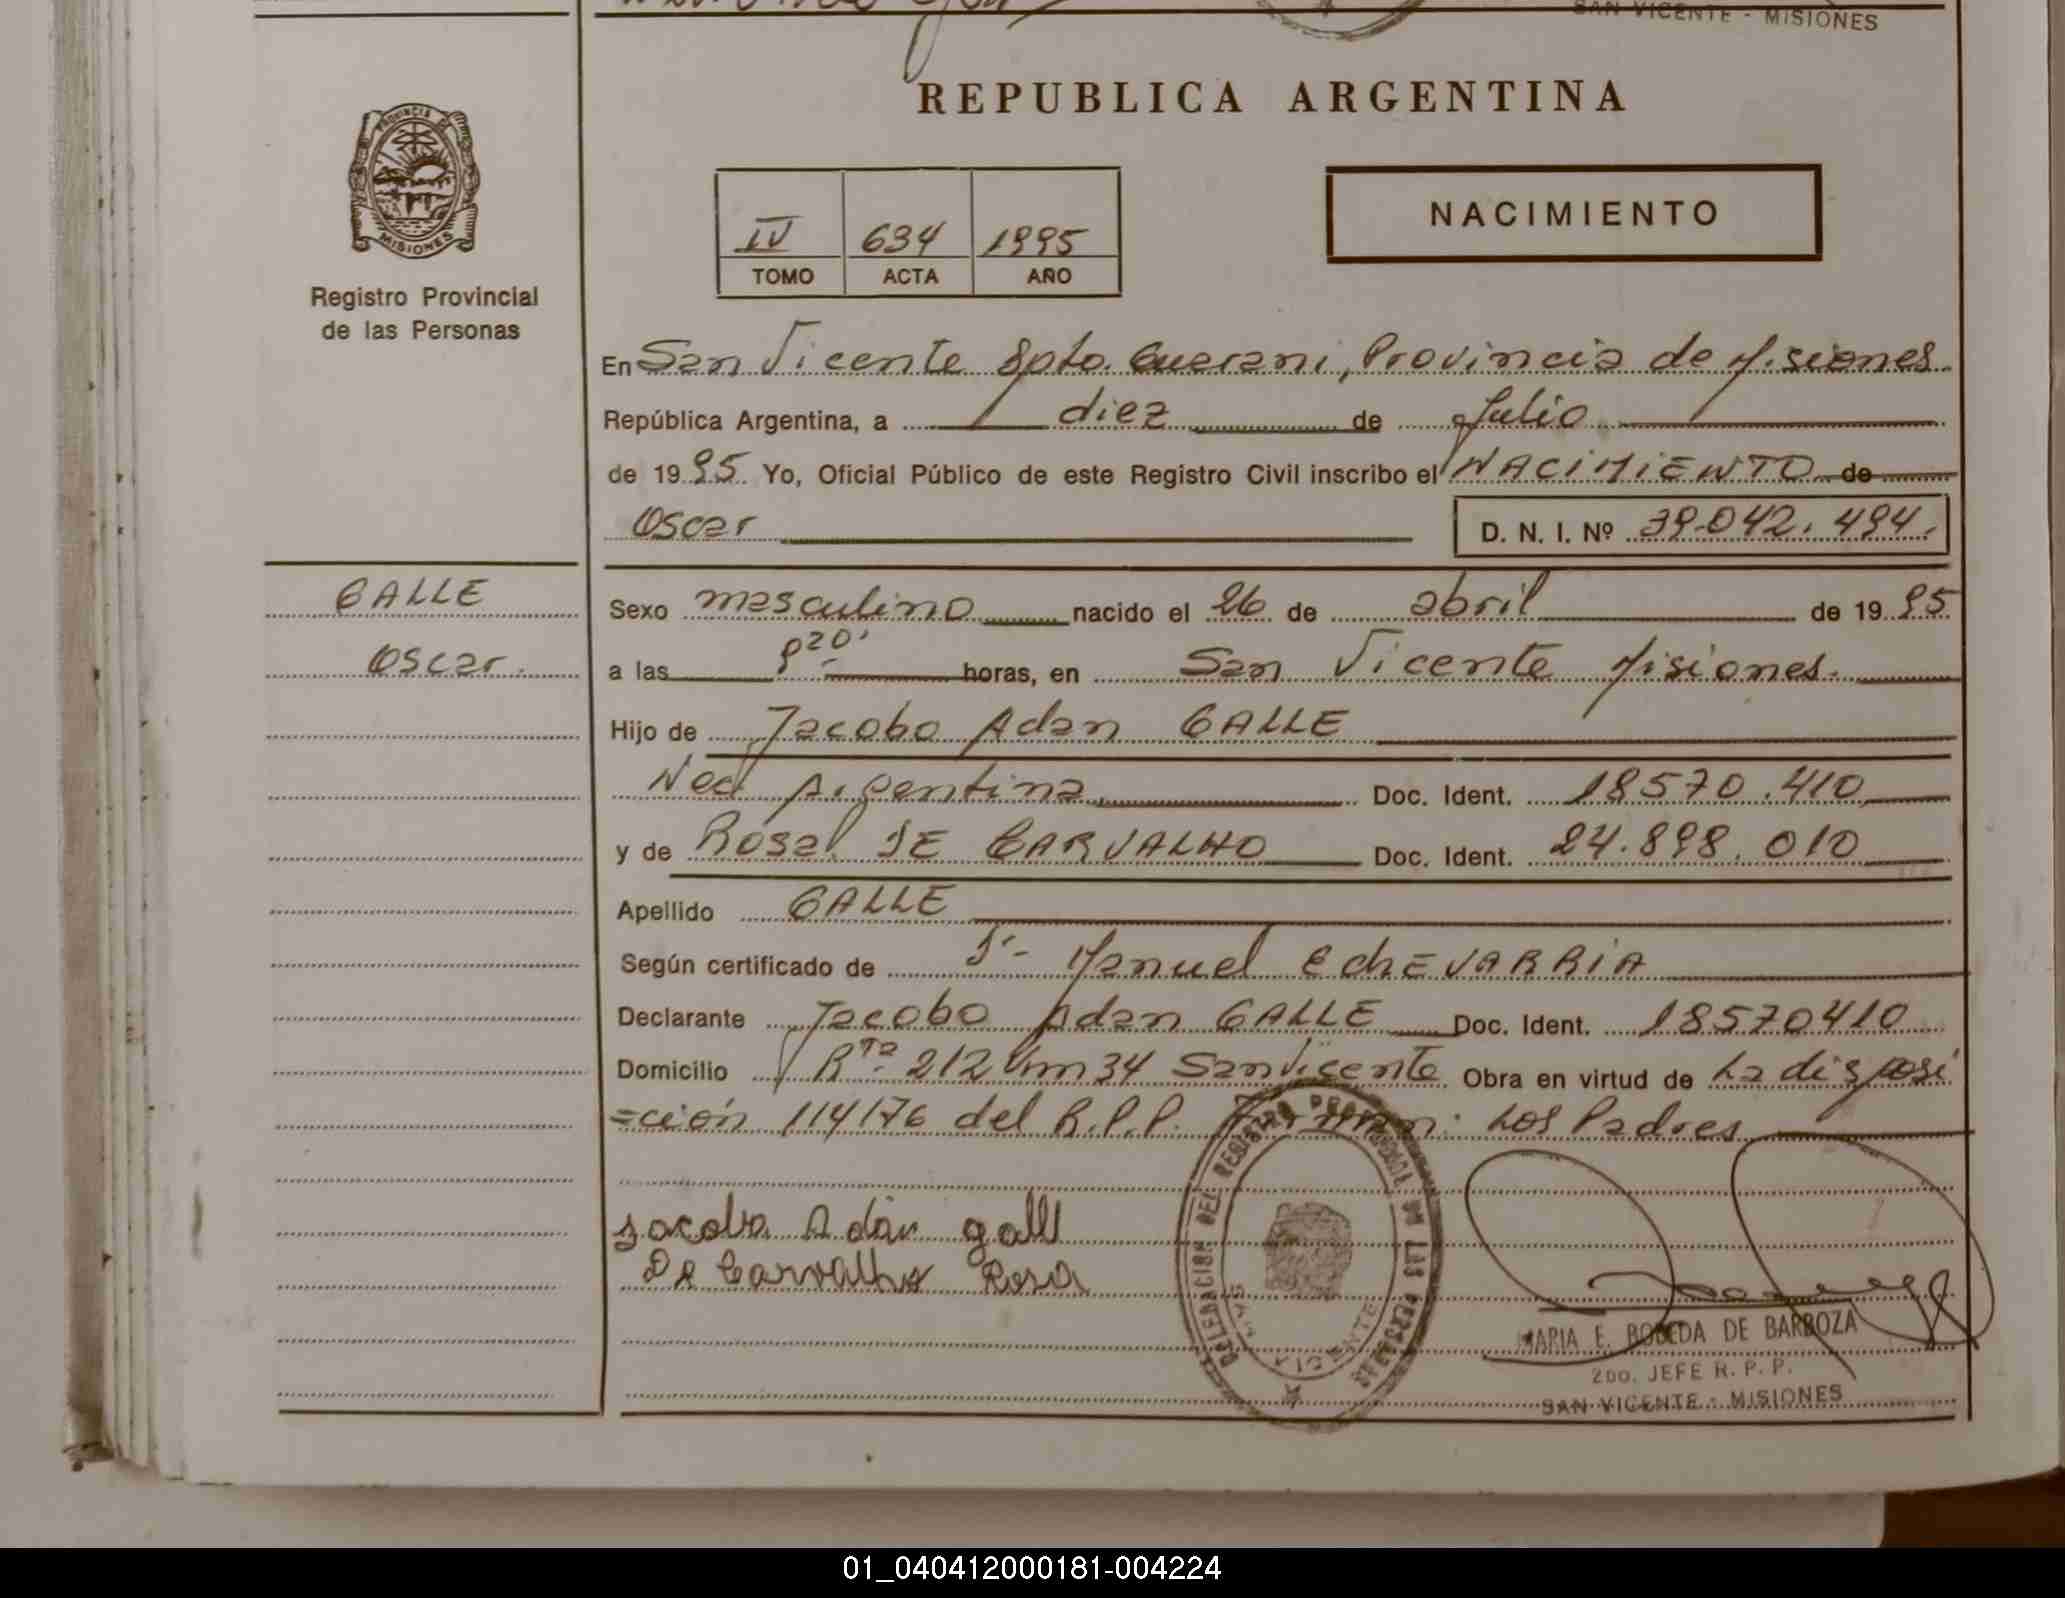 SAN VICENTE - MISIONES
PROVINCIA DE
MISIONES
Registro Provincial
de las Personas
REPUBLICA ARGENTINA
NACIMIENTO
IV 634 1995
TOMO ACTA AÑO
En San Vicente Dpto. Guarani, Provincia de Misiones
República Argentina, a diez de Julio
de 1995 Yo, Oficial Público de este Registro Civil inscribo el NACIMIENTO de
Oscar D. N. I. Nº 39.042.494.
GALLE
Oscar.
Sexo masculino nacido el 26 de abril de 1995
a las 8 20' horas, en San Vicente Misiones.
Hijo de Jacobo Adan GALLE
Nac. Argentina Doc. Ident. 18570.410
y de Rosa DE CARVALHO Doc. Ident. 24.898.010
Apellido GALLE
Según certificado de Dr- Manuel EchEVARRIA
Declarante Jacobo Adan GALLE Doc. Ident. 18570410
Domicilio Rta. 212 Km 34 San Vicente Obra en virtud de La disposi
=ción 114/76 del R.P.P. Firman: Los Padres
Jacobo Adán gall
De Carvalho Rosa
DELEGACION DEL REGISTRO PROVINCIAL DE LAS PERSONAS
SAN VICENTE
MARIA E. BOBEDA DE BARBOZA
2DO. JEFE R. P. P.
SAN VICENTE - MISIONES
01_040412000181-004224